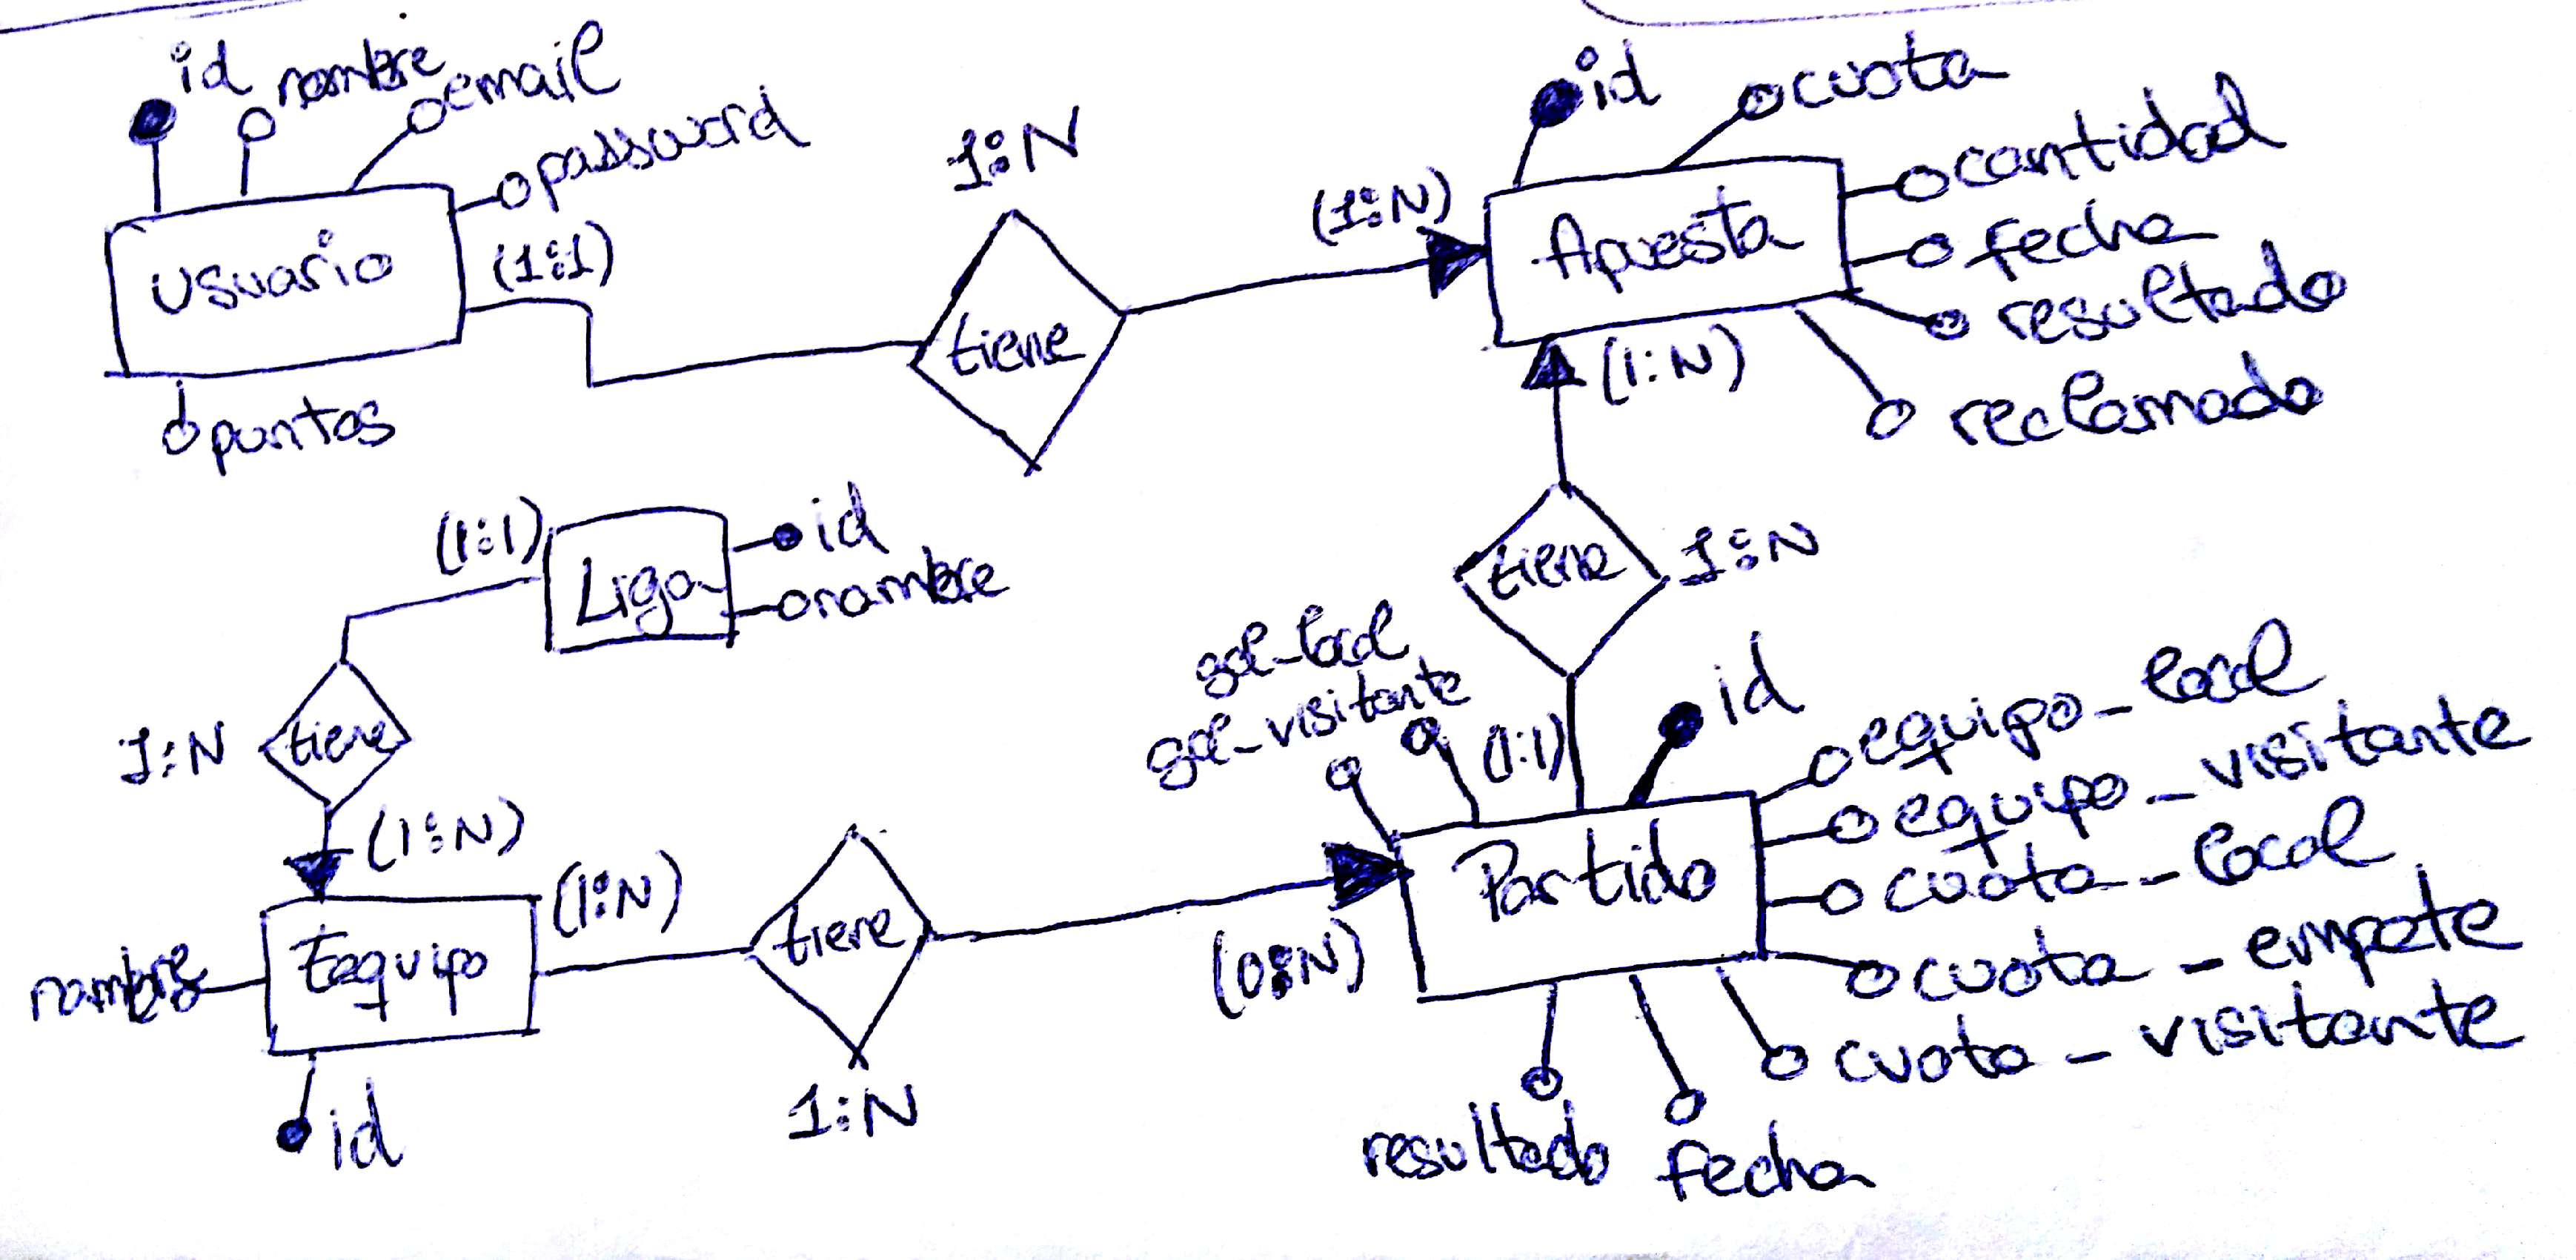 id
nombre
email
password
(1:1)
Usuario
puntos
1:N
tiene
(1:N)
id
cuota
cantidad
fecha
resultado
reclamado
Apuesta
(1:N)
tiene
1:N
(1:1)
Liga
id
nombre
1:N
tiene
(1:N)
Equipo
nombre
id
(1:N)
tiene
1:N
(0:N)
gol-local
gol-visitante
(1:1)
id
Partido
equipo-local
equipo-visitante
cuota-local
cuota-empate
cuota-visitante
resultado
fecha